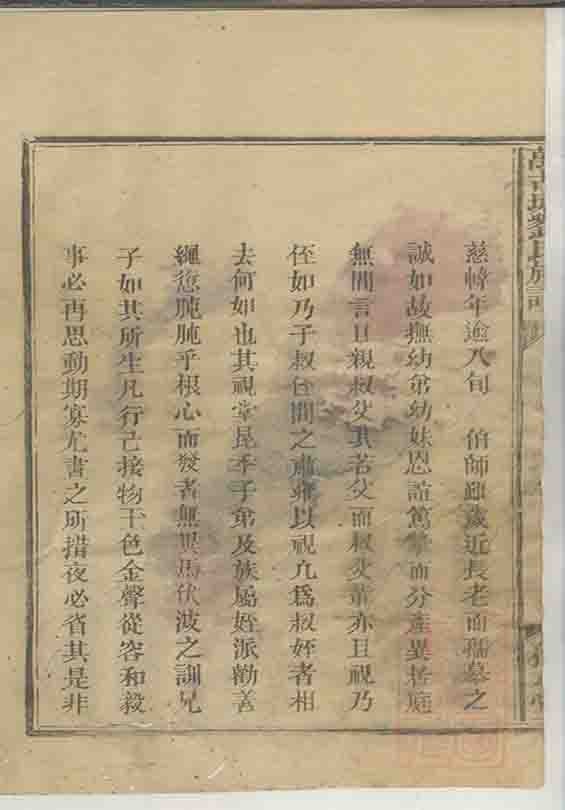 劉氏族
慈幃年逾八旬 伯師雖歲近長老而孺慕之
誠如故撫幼弟幼妹恩誼篤摯而分產異居庭
無間言且視叔父其若父而叔父輩亦且視乃
侄如乃子叔侄間之肅雍以視凡為叔姪者相
去何如也其視堂昆季子弟及族屬姪派勸善
繩愆肫肫乎根心而發者無異馬伏波之訓兄
子如其所生凡行己接物玉色金聲從容和毅
事必再思動期寡尤晝之所措夜必省其是非